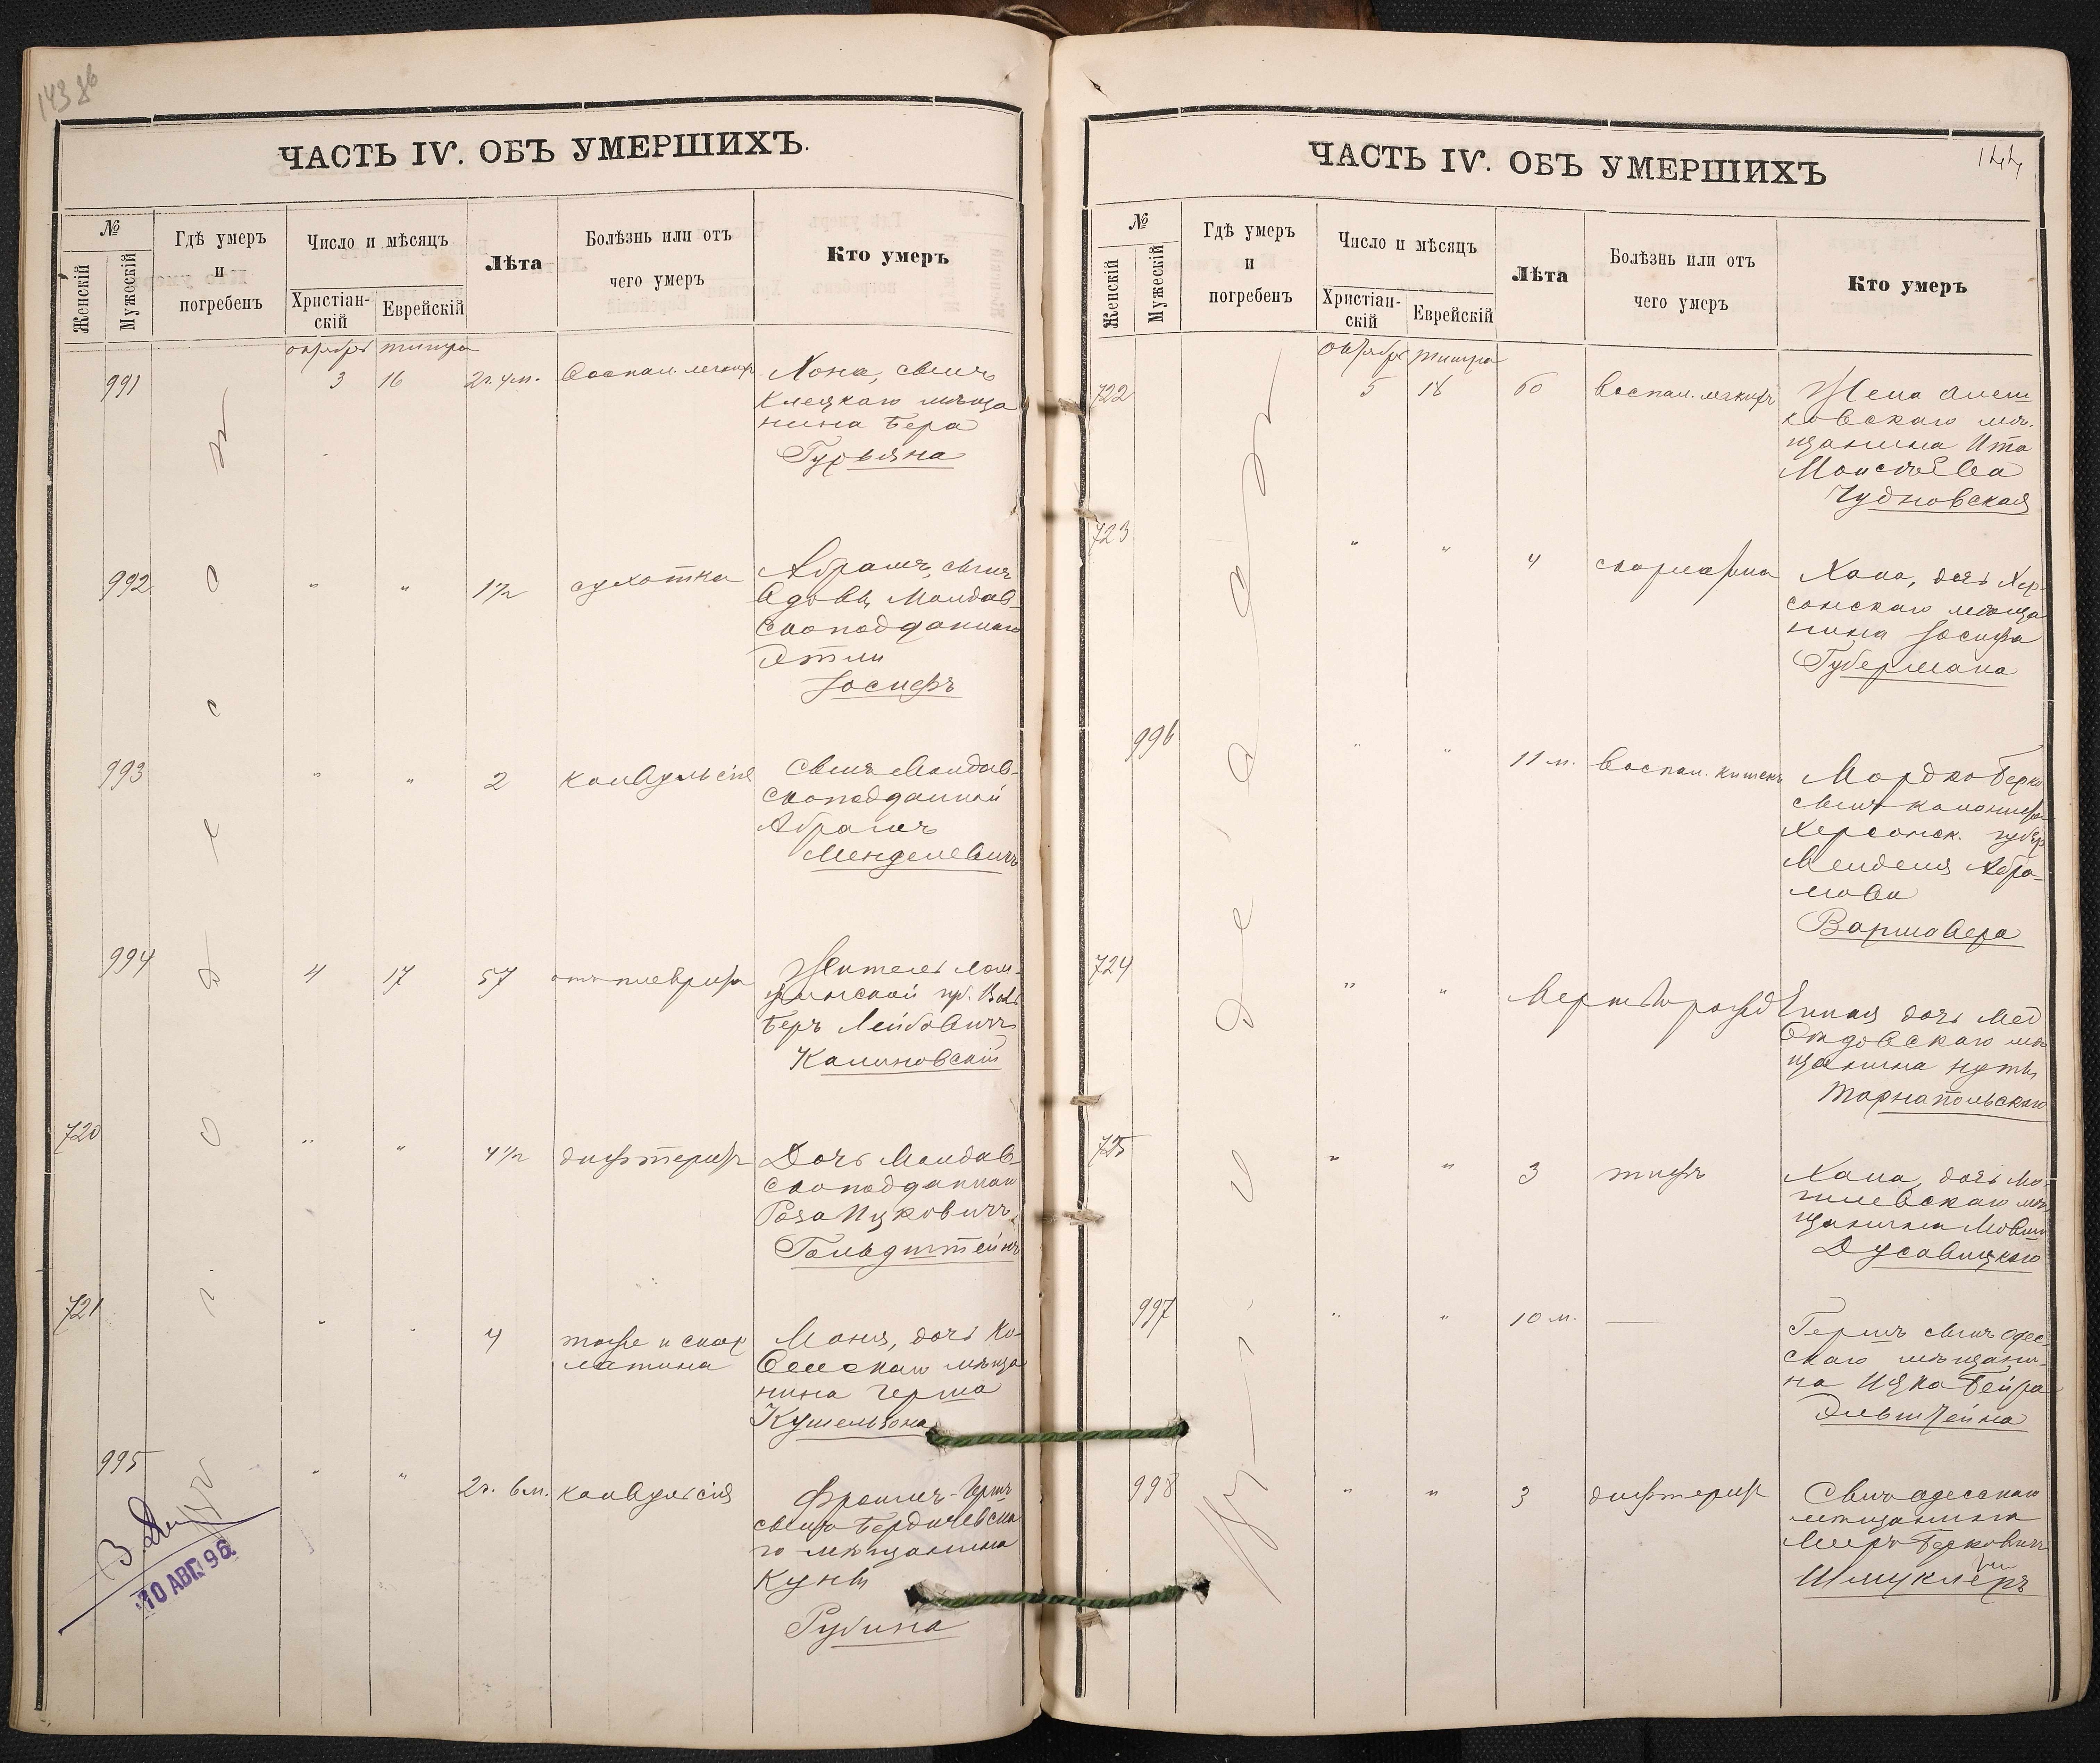 143 об
ЧАСТЬ IV. ОБЪ УМЕРШИХЪ.
№
Женскій
Мужескій
Гдѣ умеръ
и
погребенъ
Число и мѣсяцъ
Христіан-
скій
Еврейскій
Лѣта
Болѣзнь или отъ
чего умеръ
Кто умеръ
октябрь тишри
991 3 16 2г. 4м. Воспал. легкихъ Хона, сынъ
Клецкаго мѣща
нина Бера
Гурвина
992 " " 1½ сухотка Абрамъ, сынъ
Вдовы Молдав-
скоподданнаго
Этли
Іосифъ
993 " " 2 конвульсія Сынъ Молдав-
скоподданный
Абрамъ
Менделевичъ
994 4 17 57 отъ плеврита Житель Лом-
жинской гб.
Беръ Лейбовичъ
Калиновскій
720 " " 4½ дифтеритъ Дочь Молдав-
скоподданная
Роза Ицковичъ
Гольдштейнъ
721 " " 4 тоже и скар
латина
Маня, дочь Ко-
венскаго мѣща
нина Герша
Кушельзона
995 " " 2г. 6м. конвульсія Фроимъ-Гершъ
сынъ Бердичевска
го мѣщанина
Куны
Рубина
10 АВГ. 96
ЧАСТЬ IV. ОБЪ УМЕРШИХЪ
144
№
Женскій
Мужескій
Гдѣ умеръ
и
погребенъ
Число и мѣсяцъ
Христіан-
скій
Еврейскій
Лѣта
Болѣзнь или отъ
чего умеръ
Кто умеръ
октябрь тишри
722 5 18 60 воспал. легкихъ Жена Алеш
ковскаго мѣ-
щанина Ита
Моисѣева
Чудновская
723 " " 4 скарлатина Хана, дочь Хер-
сонскаго мѣща
нина Іосифа
Губермана
996 " " 11 м. Воспал. кишекъ Мордко Берко
сынъ колониста
Херсонск. губер
Менделя Абра-
мова
Варшавера
724 " " Мертворожденная дочь Мед
мѣ
щанина Нуты
Тарнапольскаго
725 " " 3 тифъ Хана, дочь Мо-
гилевскаго мѣ
щанина Мовши
Дусавицкаго
997 " " 10 м. — Гершъ сынъ Одес
скаго мѣщани-
на Ицка Бейра
Эльштейна
998 " " 3 дифтеритъ Сынъ одесскаго
мѣщанина
Меръ Берковичъ
Шмуклеръ